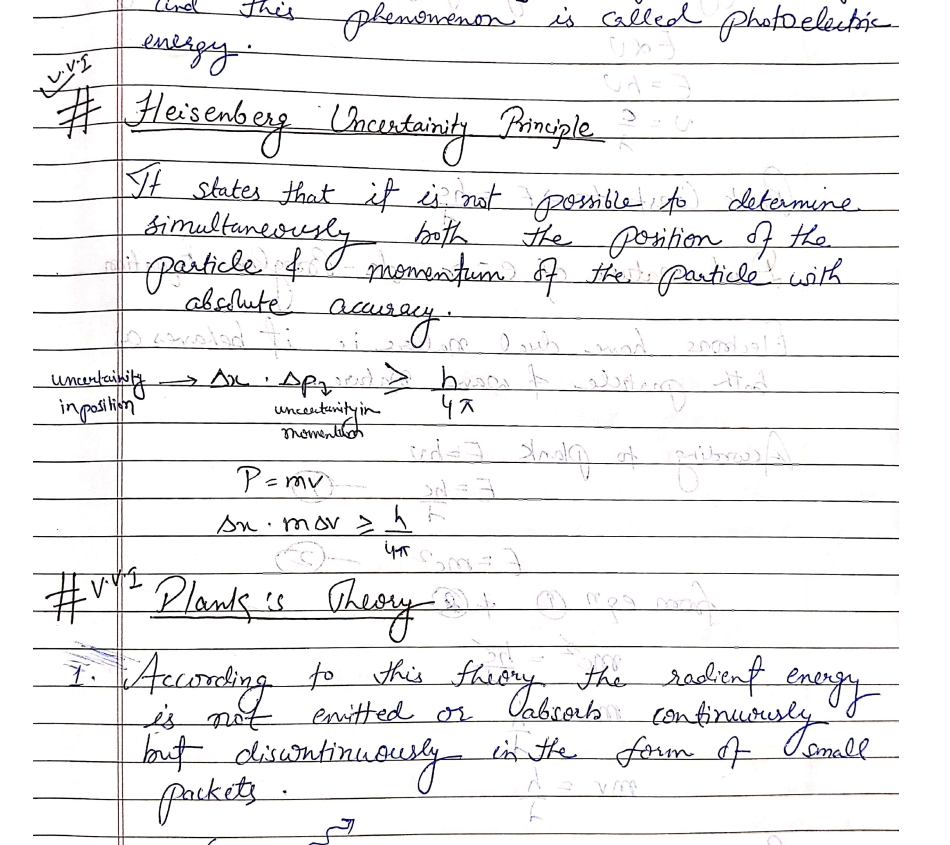 And this phenomenon is called photoelectric
energy.
V.V.I
# Heisenberg Uncertainity Principle
It states that it is not possible to determine
simultaneously both the position of the
particle & momentum of the particle with
absolute accuracy.
uncertainity in position → Δx . Δp ≥ h/4π
uncertainity in momentum
P = mv
Δx . mΔv ≥ h/4π
# V.V.I Plank's Theory
1. According to this theory the radient energy
is not emitted or absorb continuously
but discontinuously in the form of small
packets.